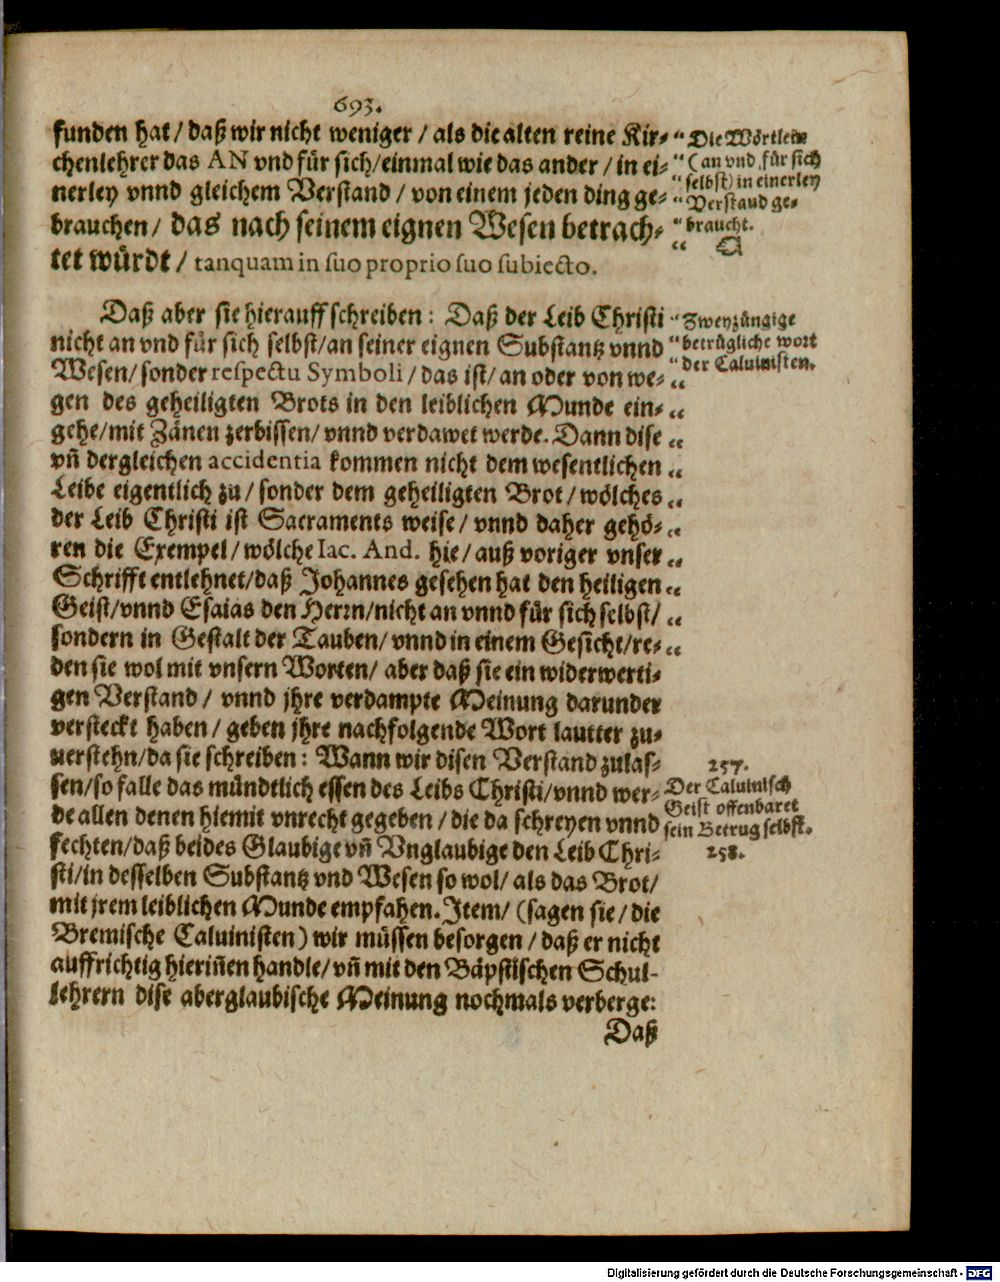 693.
funden hat/ daß wir nicht weniger/ als die alten reine Kir-
chenlehrer das AN vnd für sich/ einmal wie das ander/ in ei-
nerley vnnd gleichem Verstand/ von einem jeden ding ge-
brauchen/ das nach seinem eignen Wesen betrach-
tet würdt/ tanquam in suo proprio suo subiecto.
Die Wörtlein
(an vnd für sich
selbst) in einerley
Verstand ge-
braucht.
Daß aber sie hierauff schreiben: Daß der Leib Christi
nicht an vnd für sich selbst/ an seiner eignen Substantz vnnd
Wesen/ sonder respectu Symboli/ das ist/ an oder von we-
gen des geheiligten Brots in den leiblichen Munde ein-
gehe/ mit Zänen zerbissen/ vnnd verdawet werde. Dann dise
vñ dergleichen accidentia kommen nicht dem wesentlichen
Leibe eigentlich zu/ sonder dem geheiligten Brot/ wölches
der Leib Christi ist Sacraments weise/ vnnd daher gehö-
ren die Exempel/ wölche Iac. And. hie/ auß voriger vnser
Schrifft entlehnet/ daß Johannes gesehen hat den heiligen
Geist/ vnnd Esaias den Herrn/ nicht an vnnd für sich selbst/
sondern in Gestalt der Tauben/ vnnd in einem Gesicht/ re-
den sie wol mit vnsern Worten/ aber daß sie ein widerwerti-
gen Verstand/ vnnd jhre verdampte Meinung darunder
versteckt haben/ geben jhre nachfolgende Wort lautter zu-
uerstehn/ da sie schreiben: Wann wir disen Verstand zulas-
sen/ so falle das mündtlich essen des Leibs Christi/ vnnd wer-
de allen denen hiemit vnrecht gegeben/ die da schreyen vnnd
fechten/ daß beides Glaubige vñ Vnglaubige den Leib Chri-
sti/ in desselben Substantz vnd Wesen so wol/ als das Brot/
mit jrem leiblichen Munde empfahen. Item/ (sagen sie/ die
Bremische Caluinisten) wir müssen besorgen/ daß er nicht
auffrichtig hieriñen handle/ vñ mit den Bäpstischen Schul-
lehrern dise aberglaubische Meinung nochmals verberge:
Zweyzüngige
betrügliche wort
der Caluinisten.
257.
Der Caluinisch
Geist offenbaret
sein Betrug selbst.
258.
Daß
Digitalisierung gefördert durch die Deutsche Forschungsgemeinschaft - DFG